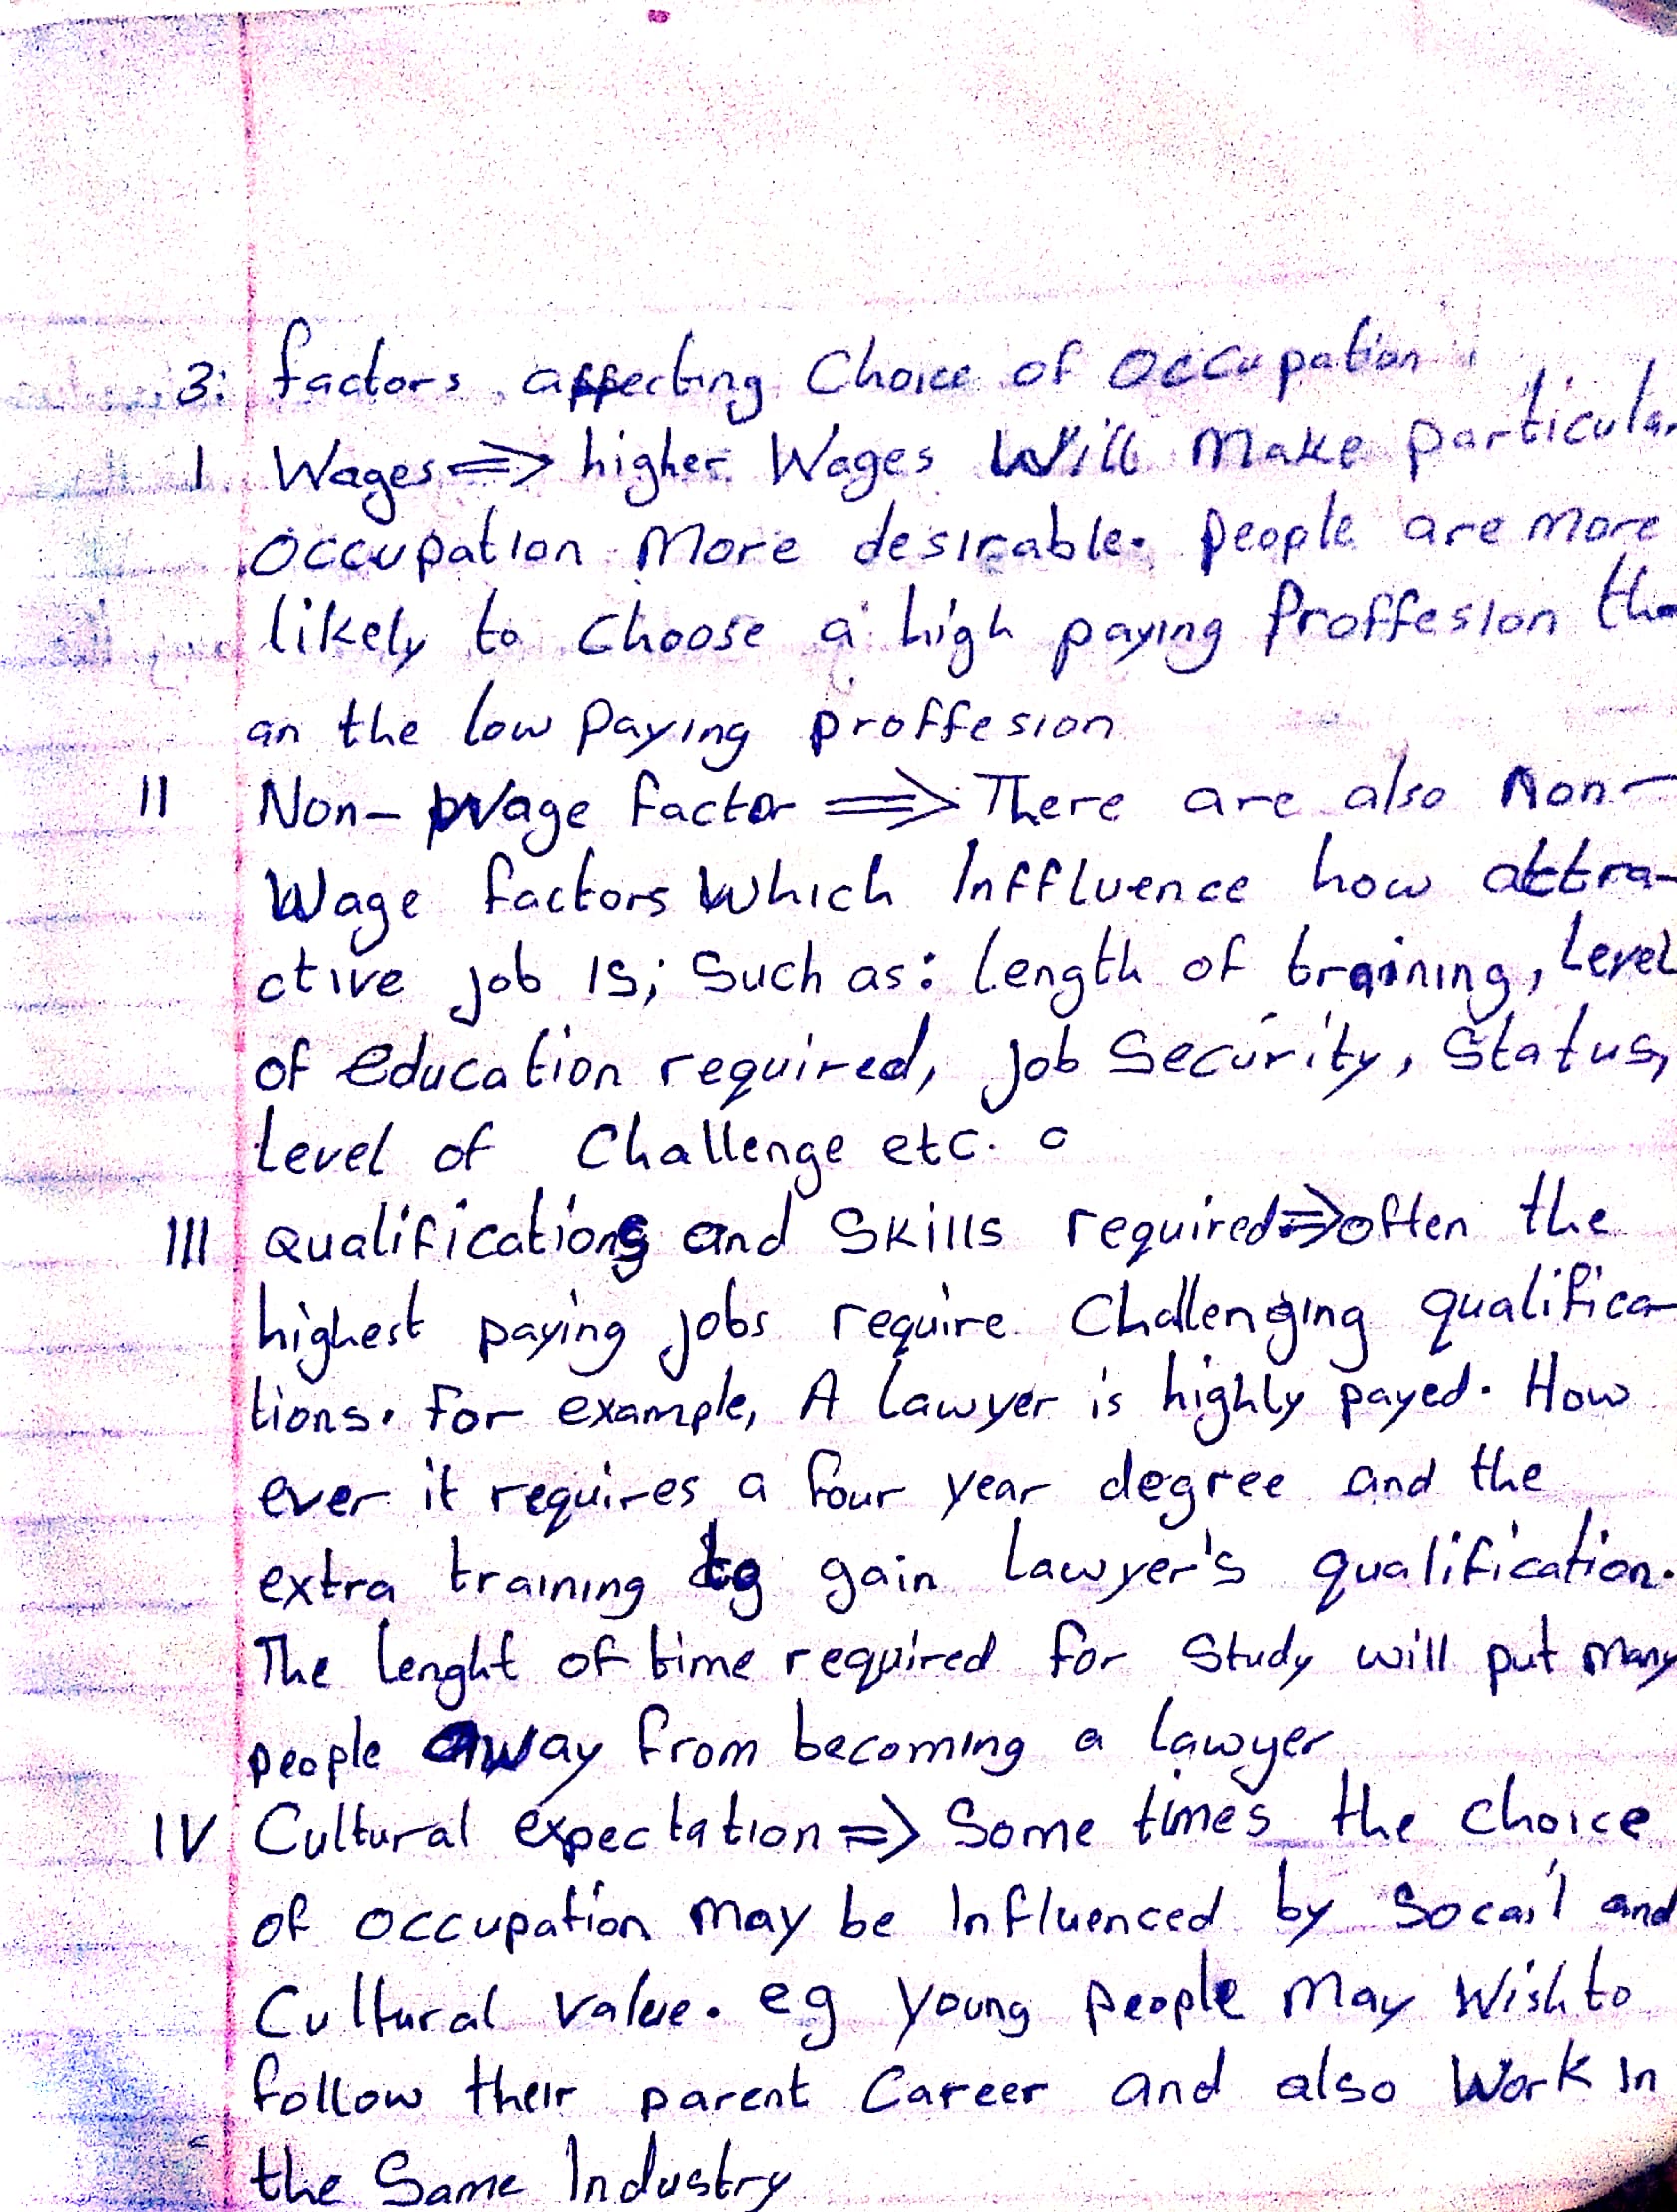 3: factors affecting Choice of Occupation
I Wages => higher Wages Will Make particular
Occupation More desirable. people are more
likely to choose a high paying Proffesion th
an the low paying proffesion
II Non-Wage factor => There are also Non-
Wage factors Which Inffluence how attra-
ctive job is; Such as: length of training, level
of education required, job Security, Status,
level of Challenge etc.
III Qualifications and Skills required => often the
highest paying jobs require Challenging qualifica-
tions. For example, A lawyer is highly payed. How
ever it requires a four year degree and the
extra training to gain lawyer's qualification.
The lenght of time required for Study will put many
people away from becoming a lawyer
IV Cultural expectation => Some times the choice
of occupation may be Influenced by Socail and
Cultural value. eg young people may Wish to
follow their parent Career and also Work In
the Same Industry